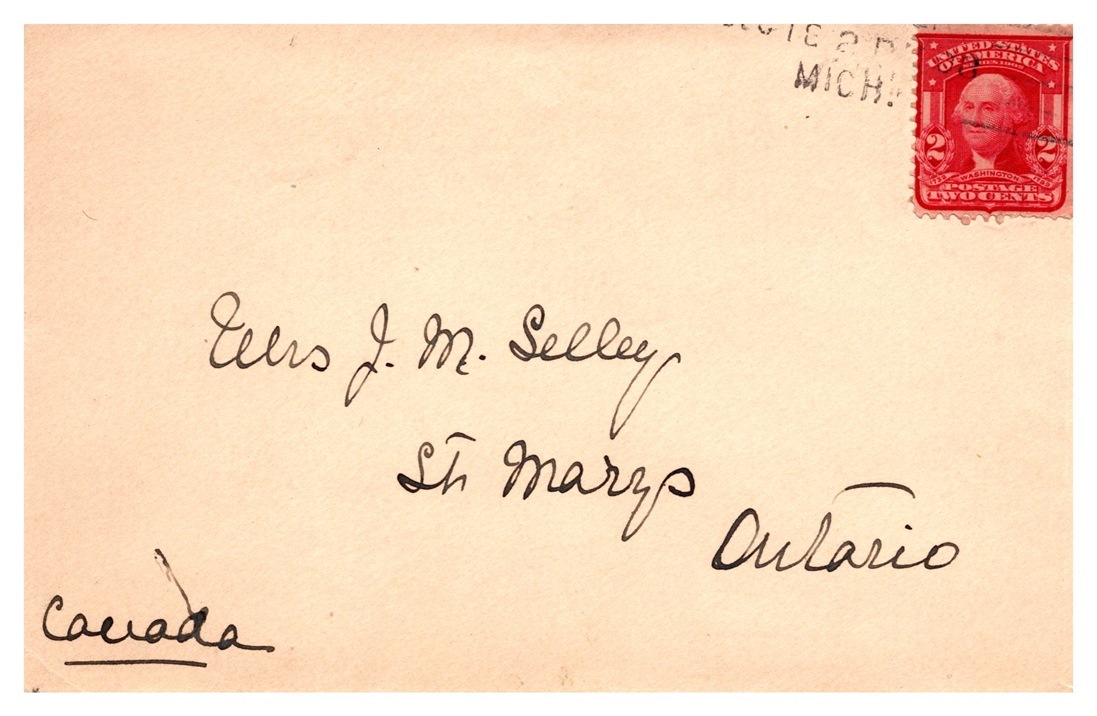 MICH.
UNITED STATES
OF AMERICA
SERIES 1902
2 2
1732 WASHINGTON 1799
POSTAGE
TWO CENTS
Mrs J. M. Selley
St Marys
Ontario
Canada